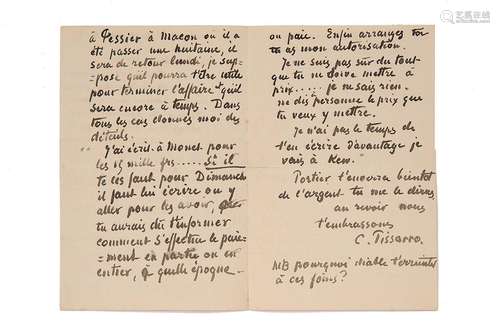 à Tessier à Macon ou il a
été passer une huitaine, il
sera de retour lundi, je sup=
=pose qu'il pourra t'être utile
pour terminer l'affaire qu'il
sera encore à temps. Dans
tous les cas donnes moi des
détails.
J'ai écrit à Monet pour
les 15 mille frs..... Si il
te les faut pour Dimanche
il faut lui écrire ou y
aller pour les avoir,
tu aurais dû t'informer
comment s'effectue le paie=
=ment en partie ou en
entier, à quelle époque -
on paie. Enfin arranges toi
as mon autorisation.
Je ne suis pas sûr du tout
que tu ne doive mettre à
prix..... je ne sais rien.
ne dis à personne le prix que
tu veux y mettre.
Je n'ai pas le temps de
t'en écrire d'avantage je
vais à Kew.
Portier t'enverra bientôt
de l'argent tu me le diras,
au revoir nous
t'embrassons
C. Pissarro.
NB pourquoi diable t'éreintes
à ces foins?
易拍全球
yipai.cn